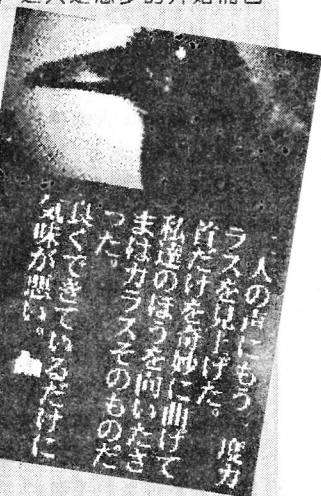 这只是恶梦的开始而已
人の声にもう一度カ
ラスを見上げた。
首だけを奇妙に曲げて
私達のほうを向いたさ
まはカラスそのものだ
った。
良くできているだけに
気味が悪い。